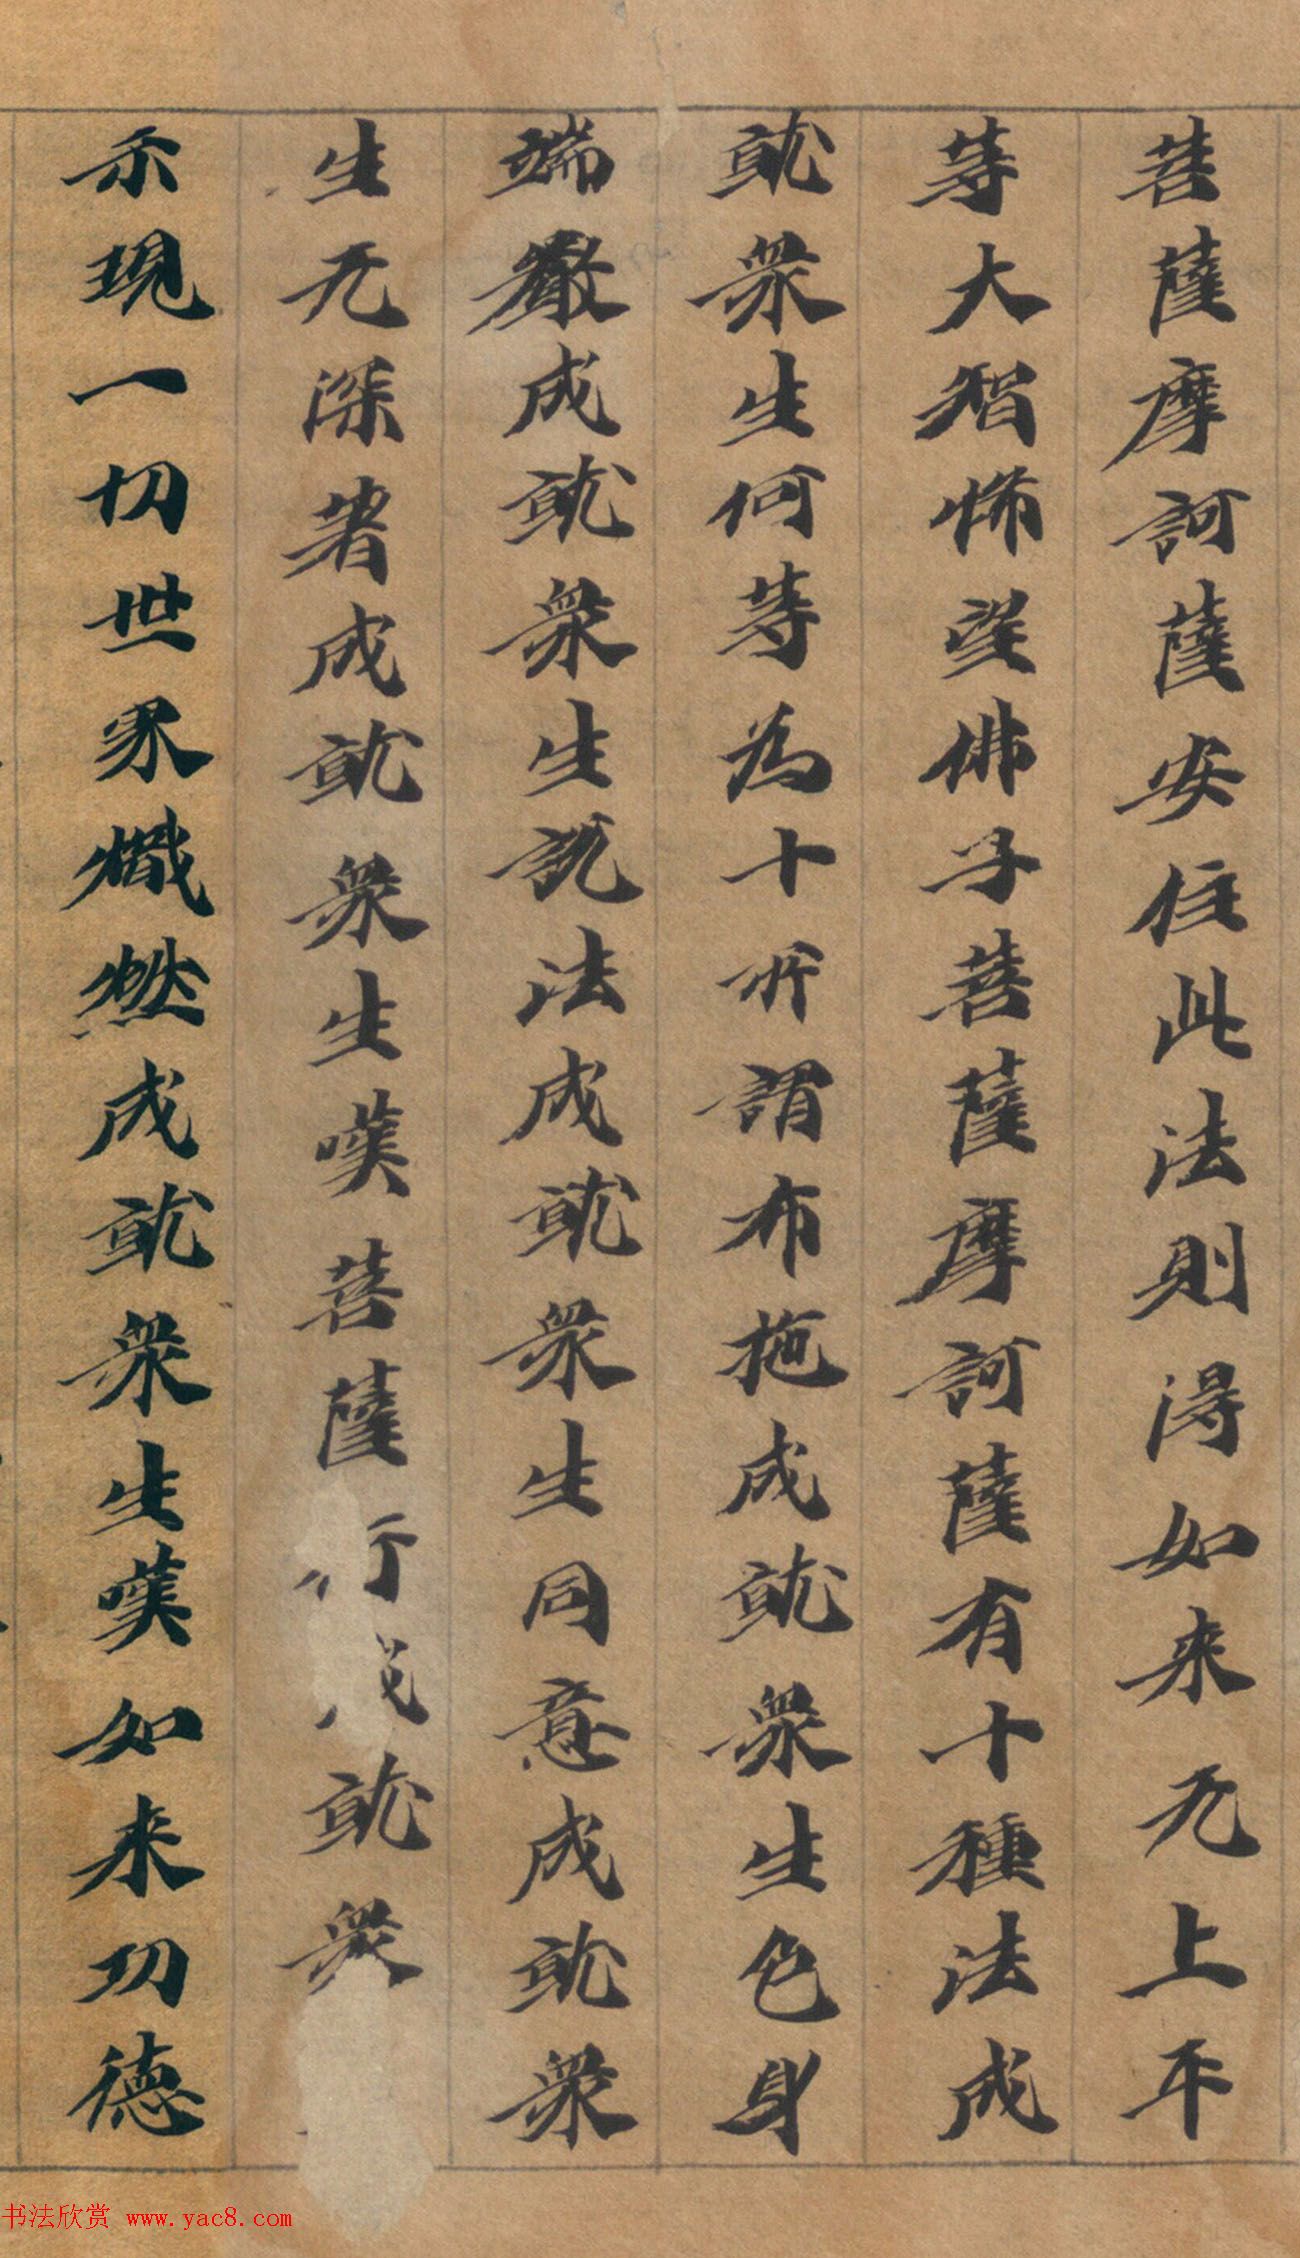 菩薩摩訶薩安住此法則得如来无上平
等大智悕望佛子菩薩摩訶薩有十種法成
就衆生何等為十所謂布施成就衆生色身
端嚴成就衆生說法成就衆生同意成就衆
生无深著成就衆生嘆菩薩行成就衆
示現一切世界熾燃成就衆生嘆如来功德
书法欣赏 www.yac8.com